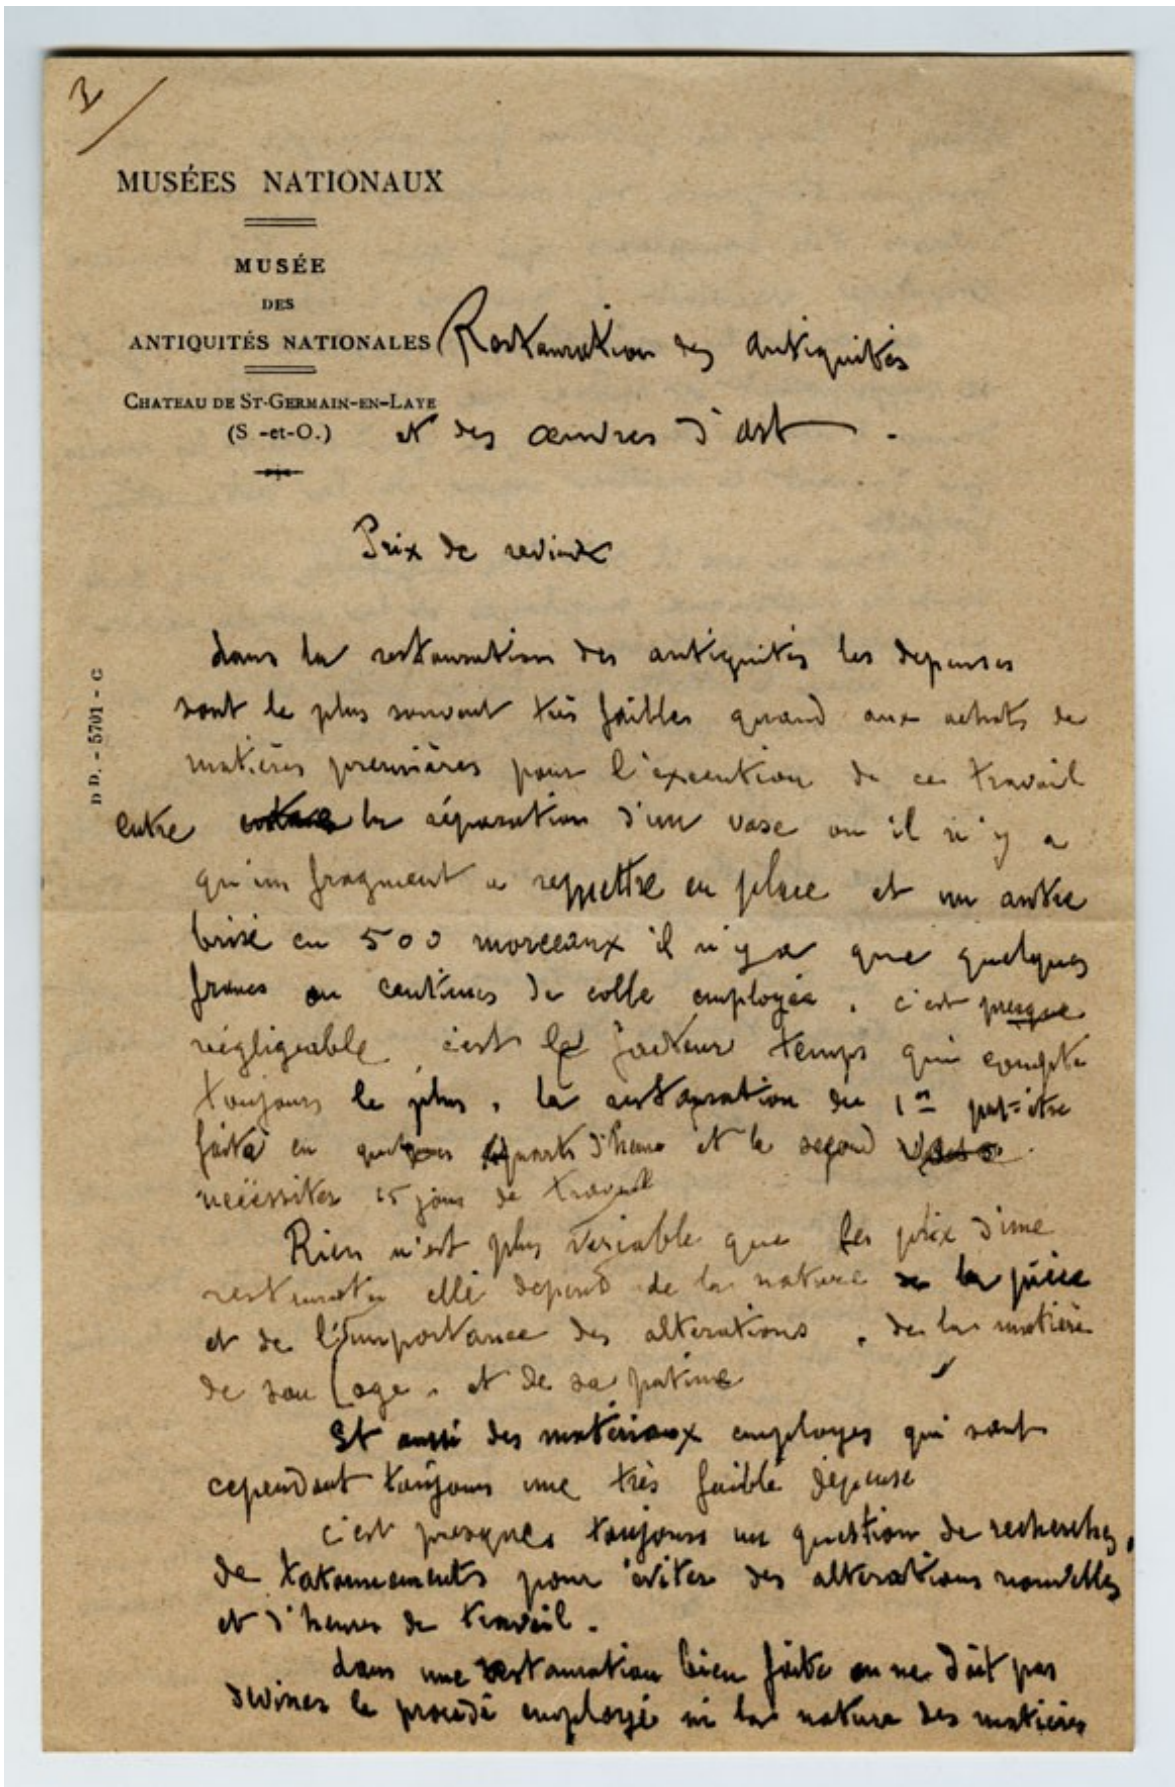 3
MUSÉES NATIONAUX
MUSÉE
DES
ANTIQUITÉS NATIONALES
CHATEAU DE ST-GERMAIN-EN-LAYE
(S -et-O.)
D D. - 5701 - C
Restauration des antiquités
et des œuvres d'art .
Prix de revient
dans la restauration des antiquités les depenses
sont le plus souvent très faibles quand aux achats de
matières premières pour l'execution de ce travail
entre la réparation d'un vase ou il n'y a
qu'un fragment a remettre en place et un autre
brisé en 500 morceaux il n'y a que quelques
francs ou centimes de colle employée . c'est presque
négligeable c'est le facteur temps qui compte
toujours le plus , la restauration du 1er peut-être
faite en quelques quarts d'heure et le segond vase
necéssiter 15 jours de travail
Rien n'est plus variable que les prix d'une
elle depend de la nature de la pièce
et de l'importance des alterations , de la matière
de son age , et de sa patine
Et aussi des matériaux employes qui sont
cependant toujours une très faible dépense
c'est presque toujours un question de recherches,
de tatonnements pour éviter des alterations nouvelles
et d'heures de travail .
dans une restauration bien faite on ne doit pas
deviner le procédé employé ni la nature des matières